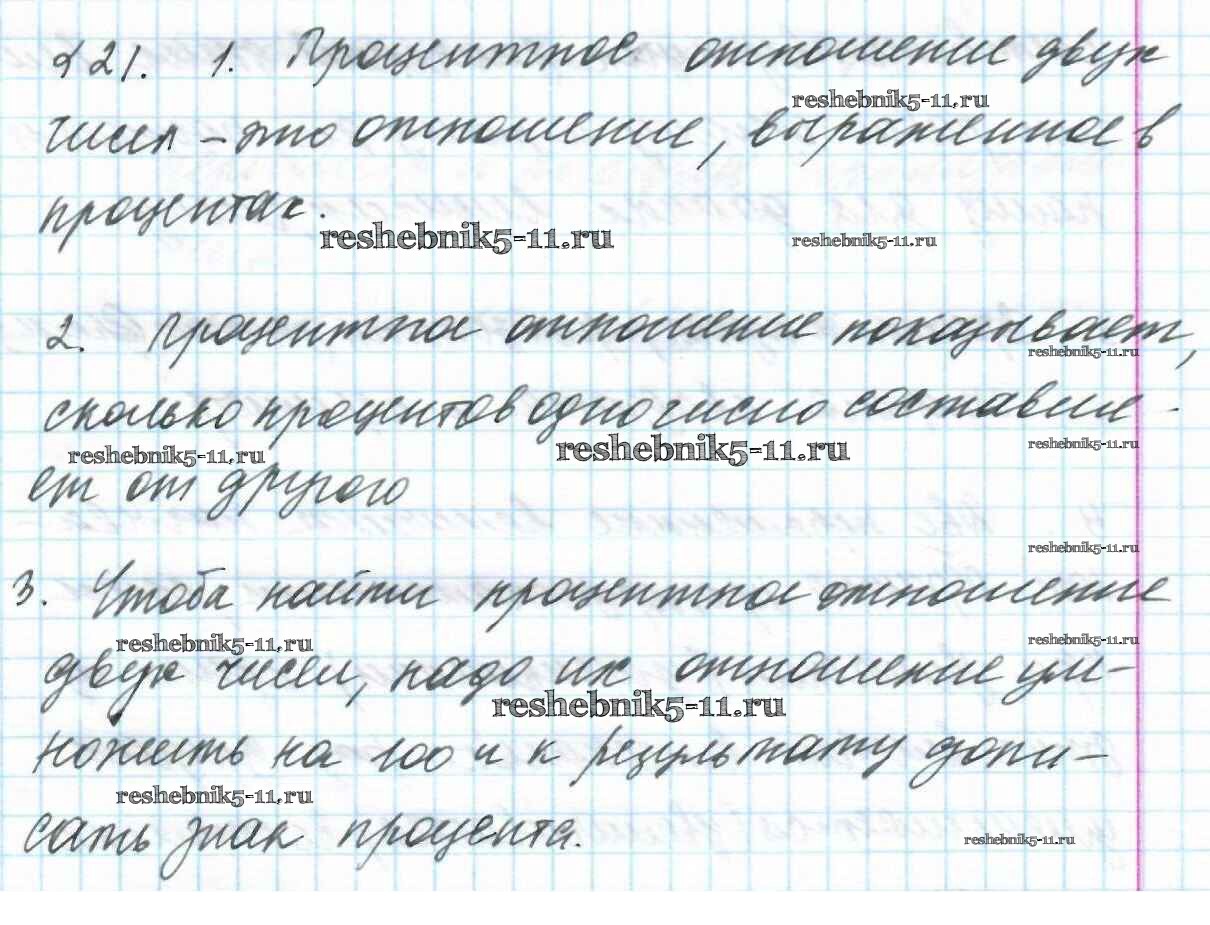 §21. 1. Процентное отношение двух
reshebnik5-11.ru
чисел – это отношение, выраженное в
процентах.
reshebnik5-11.ru
reshebnik5-11.ru
2. Процентное отношение показывает,
reshebnik5-11.ru
сколько процентов одно число составля-
reshebnik5-11.ru
reshebnik5-11.ru
reshebnik5-11.ru
ет от другого
reshebnik5-11.ru
3. Чтоба найти процентное отношение
reshebnik5-11.ru
reshebnik5-11.ru
двух чисел, надо их отношение ум-
reshebnik5-11.ru
ножить на 100 и к результату допи-
reshebnik5-11.ru
сать знак процента.
reshebnik5-11.ru